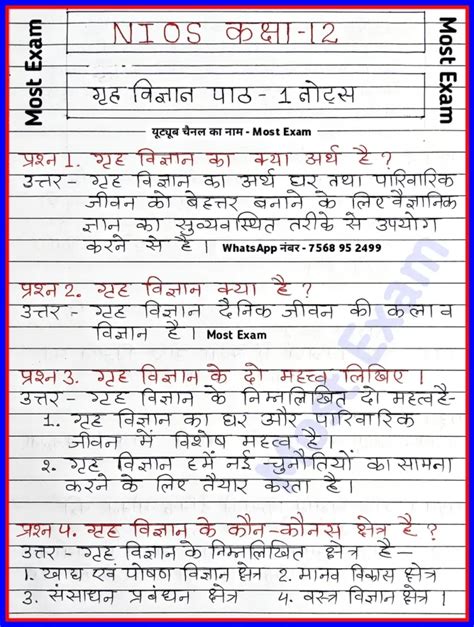 Most Exam
NIOS कक्षा-12
Most Exam
गृह विज्ञान पाठ - 1 नोट्स
यूट्यूब चैनल का नाम - Most Exam
प्रश्न 1. गृह विज्ञान का क्या अर्थ है ?
उत्तर - गृह विज्ञान का अर्थ घर तथा पारिवारिक
जीवन को बेहत्तर बनाने के लिए वैज्ञानिक
ज्ञान का सुव्यवस्थित तरीके से उपयोग
करने से है । WhatsApp नंबर - 7568 95 2499
प्रश्न 2. गृह विज्ञान क्या है ?
उत्तर - गृह विज्ञान दैनिक जीवन की कला व
विज्ञान है । Most Exam
प्रश्न 3. गृह विज्ञान के दो महत्त्व लिखिए ।
उत्तर - गृह विज्ञान के निम्नलिखित दो महत्व है-
1. गृह विज्ञान का घर और पारिवारिक
जीवन में विशेष महत्व है
2. गृह विज्ञान हमें नई चुनौतियों का सामना
करने के लिए तैयार करता है ।
प्रश्न 4. गृह विज्ञान के कौन-कौनस क्षेत्र है ?
उत्तर - गृह विज्ञान के निम्नलिखित क्षेत्र है—
1. खाद्य एवं पोषण विज्ञान क्षेत्र 2. मानव विकास क्षेत्र
3. संसाधन प्रबंधन क्षेत्र 4. वस्त्र विज्ञान क्षेत्र ।
Most Exam